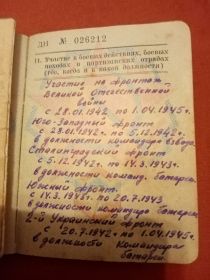 ДН № 026212
11. Участие в боевых действиях, боевых
походах и партизанских отрядах
(где, когда и в какой должности)
Участие на фронтах
Великой Отечественной
войны
с 28.01.1942 по 1.04.1945г.
Юго-Западный фронт
с 28.01.1942г. по 5.12.1942г.
в должности командира взвода
Сталинградский фронт
с 5.12.1942г. по 14.3.1943г.
в должности команд. батареи
Южный фронт
с 14.3.1943г. по 20.7.1943
в должности командира батареи
2-й Украинский фронт
с 20.7.1942г. по 1.04.1945г.
в должности командира
батареи